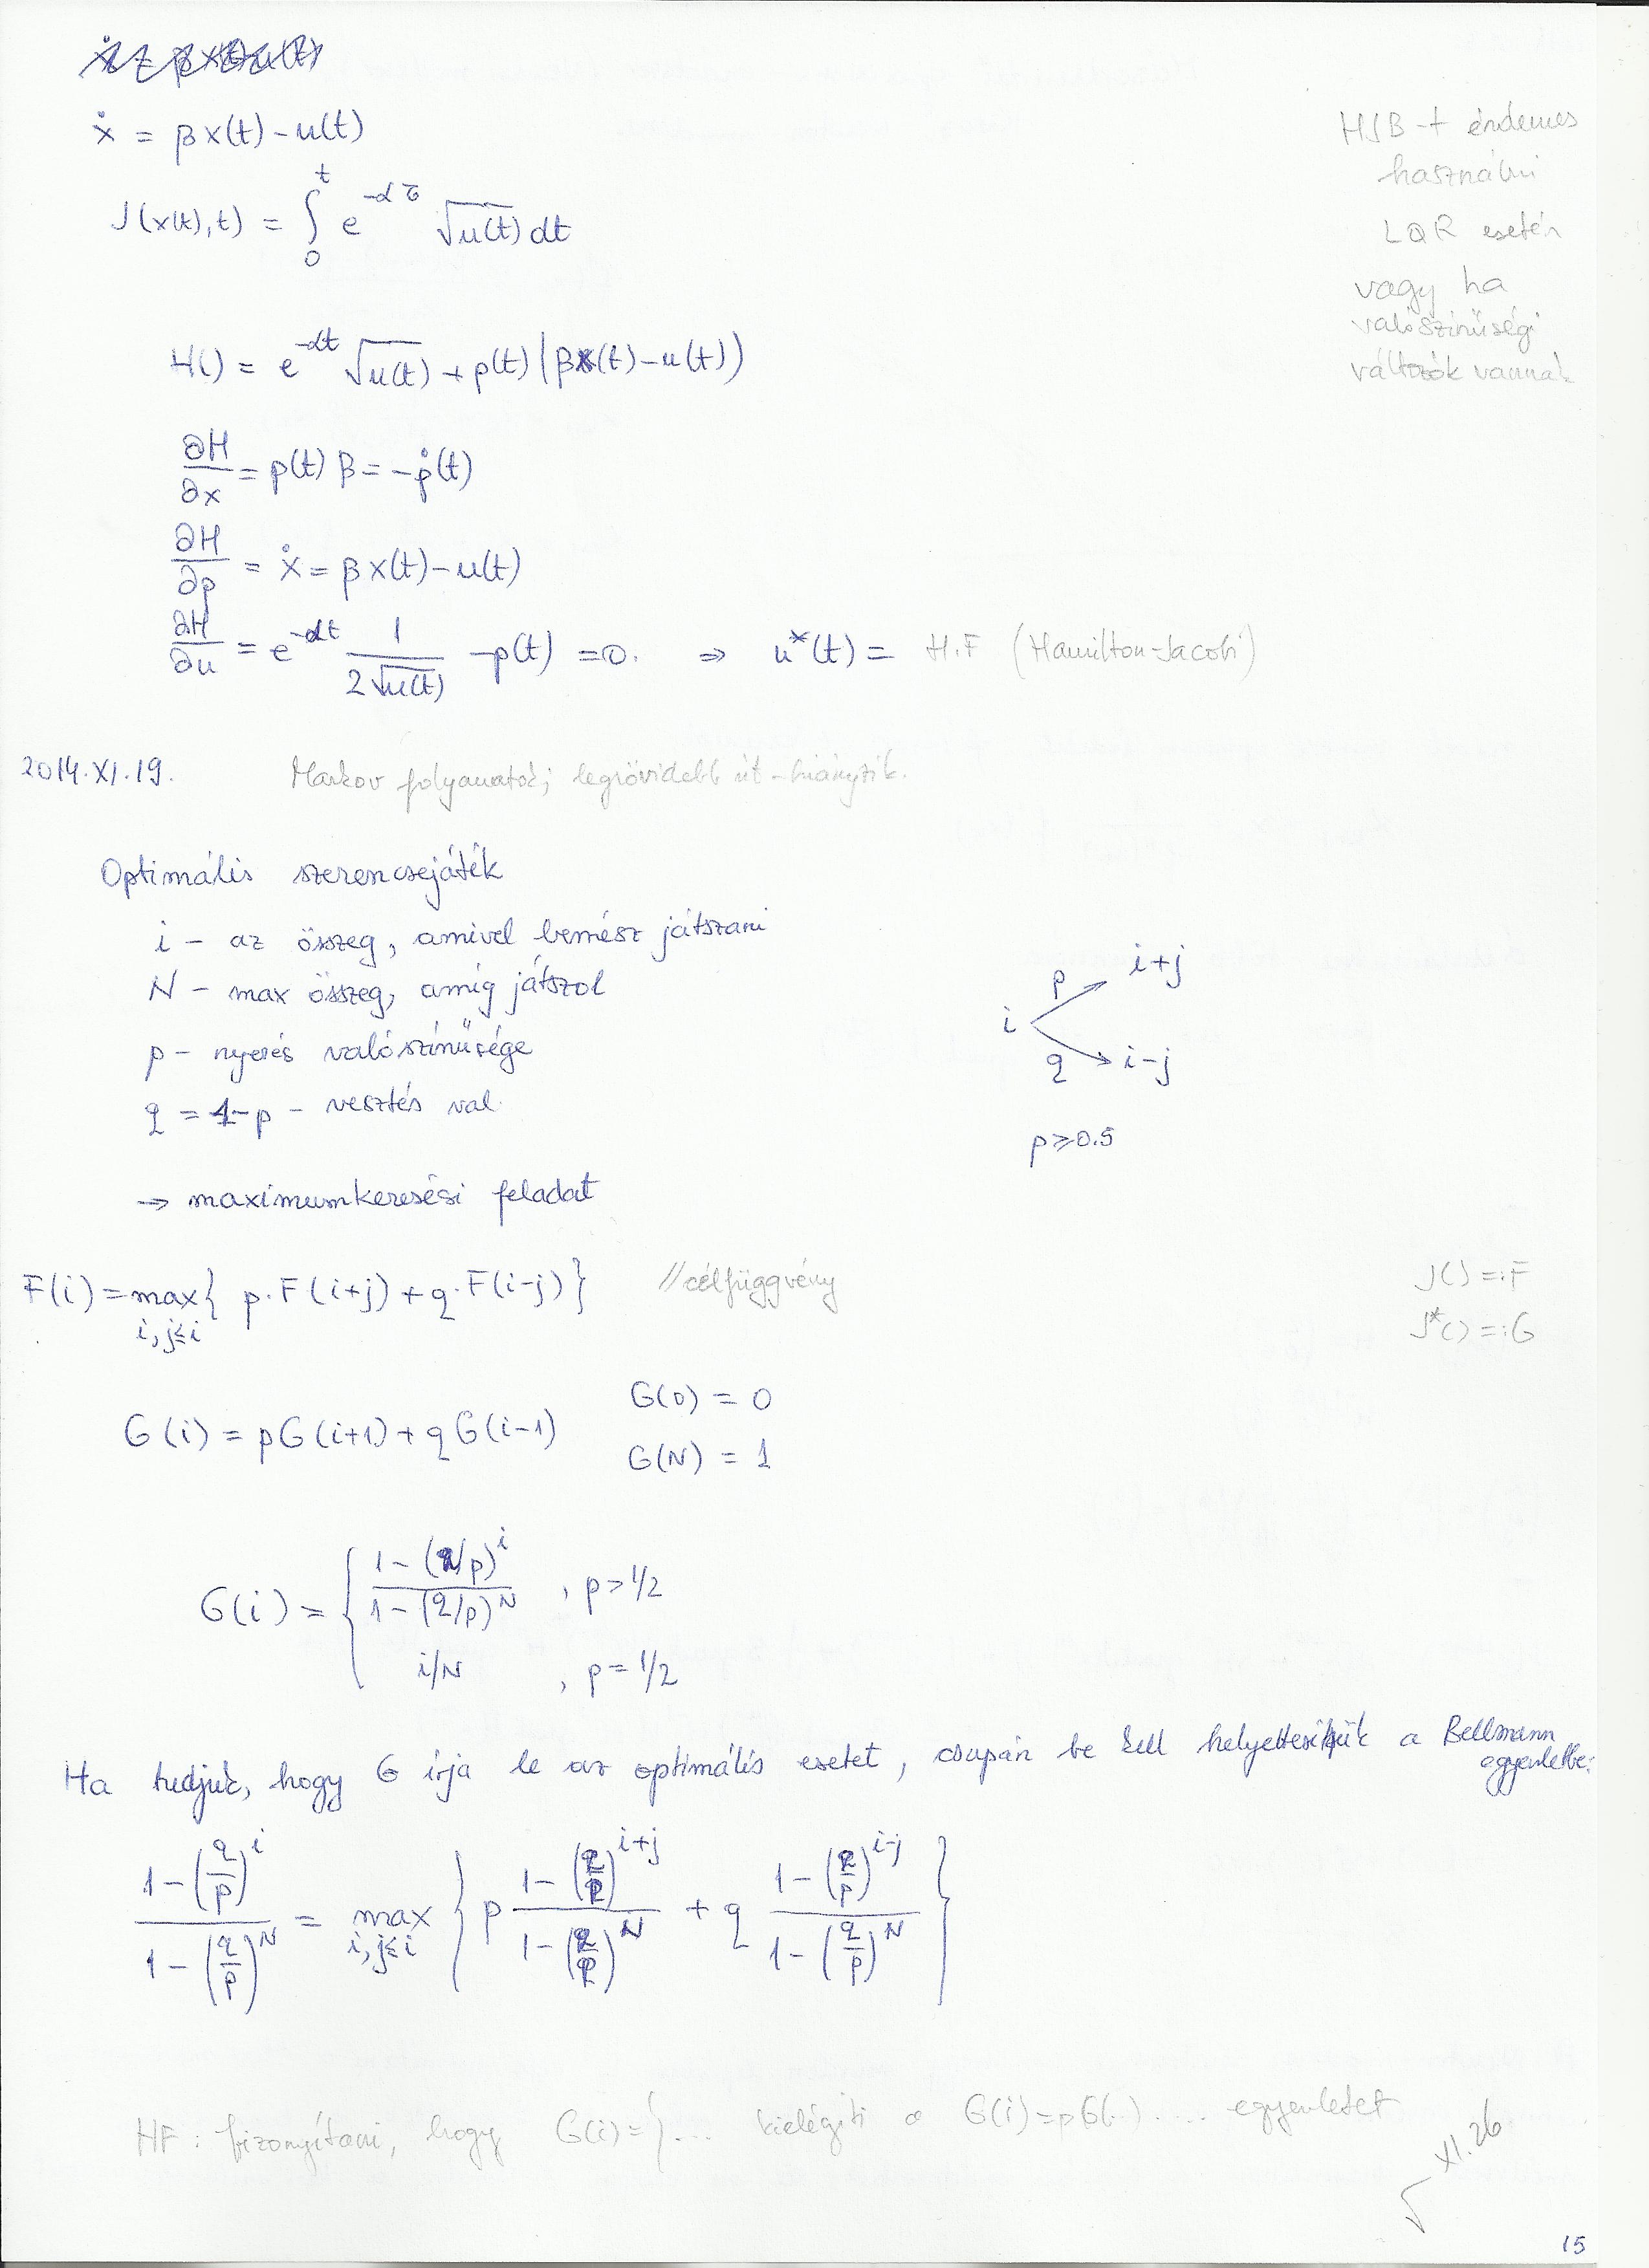 ẋ = βx(t) - u(t)
J(x(t), t) = ∫₀ᵗ e^(-ατ) √u(t) dt
HJB-t érdemes
használni
LQR esetén
vagy ha
valószínűségi
változók vannak
H() = e^(-αt) √u(t) + p(t) (βx(t) - u(t))
∂H/∂x = p(t) β = -ṗ(t)
∂H/∂p = ẋ = βx(t) - u(t)
∂H/∂u = e^(-αt) 1/(2√u(t)) - p(t) = 0. ⇒ u*(t) = H.F (Hamilton-Jacobi)
2014.XI.19. Markov folyamatok; legrövidebb út - hiányzik.
Optimális szerencsejáték
i - az összeg, amivel bemész játszani
N - max összeg, amíg játszol
p - nyerés valószínűsége
q = 1-p - vesztés val.
i
p i+j
q i-j
p ≥ 0.5
→ maximumkeresési feladat
F(i) = max_{i, j≤i} { p·F(i+j) + q·F(i-j) } //célfüggvény
J() =: F
J*() =: G
G(i) = pG(i+1) + qG(i-1)
G(0) = 0
G(N) = 1
G(i) = { (1-(q/p)^i)/(1-(q/p)^N) , p > 1/2
i/N , p = 1/2
Ha tudjuk, hogy G írja le az optimális esetet, csupán be kell helyettesítjük a Bellmann
egyenletbe:
(1-(q/p)^i)/(1-(q/p)^N) = max_{i, j≤i} { p (1-(q/p)^(i+j))/(1-(q/p)^N) + q (1-(q/p)^(i-j))/(1-(q/p)^N) }
HF: bizonyítani, hogy G(i) = { ... kielégíti a G(i)=pG(..) .... egyenletet
XI.26
15